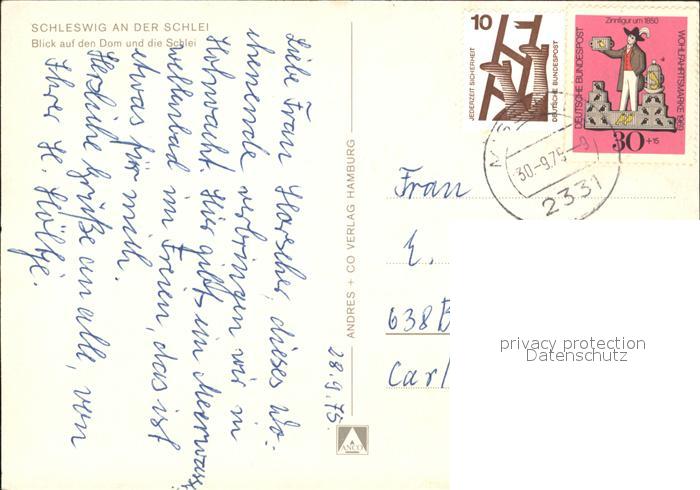 SCHLESWIG AN DER SCHLEI
Blick auf den Dom und die Schlei
28.9.75.
Liebe Frau Horscher, dieses Wo-
chenende verbringen wir in
Hohwacht. Hier gibt's im Meerwass.
wellenbad im Freien, das ist
etwas für mich.
Herzliche Grüße an alle, von
Ihrer H. Höltje.
ANDRES + CO VERLAG HAMBURG
ANCO
10
JEDERZEIT SICHERHEIT
DEUTSCHE BUNDESPOST
Zinnfigur um 1850
DEUTSCHE BUNDESPOST
WOHLFAHRTSMARKE 1969
30 +15
30.-9.75-9
2331
Frau
E.
638 B
Carl
privacy protection
Datenschutz